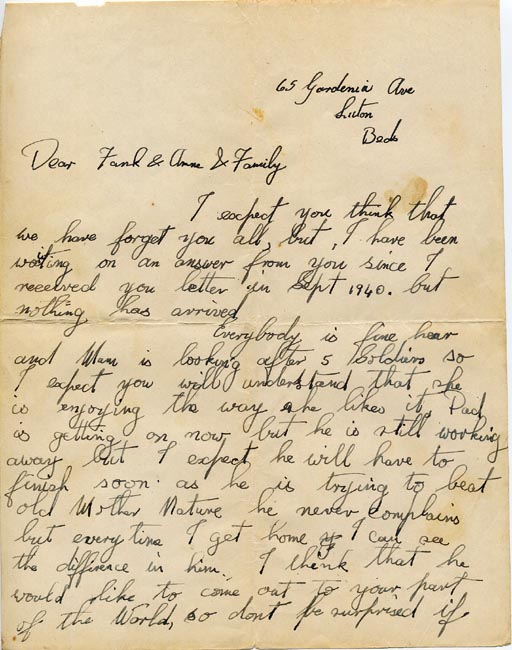 65 Gardenia Ave
Luton
Beds
Dear Fank & Anne & Family
I expect you think that
we have forget you all, but, I have been
waiting on an answer from you since I
received you letter in Sept 1940. but
nothing has arrived
Everybody is fine hear
and Mum is looking after 5 Soldiers so
I expect you will understand that she
is enjoying the way she likes it, Dad
is getting on now but he is still working
away but I expect he will have to
finish soon as he is trying to beat
old Mother Nature he never complains
but every time I get home I can see
the difference in him. I think that he
would like to come out to your part
of the World, so dont be surprised if